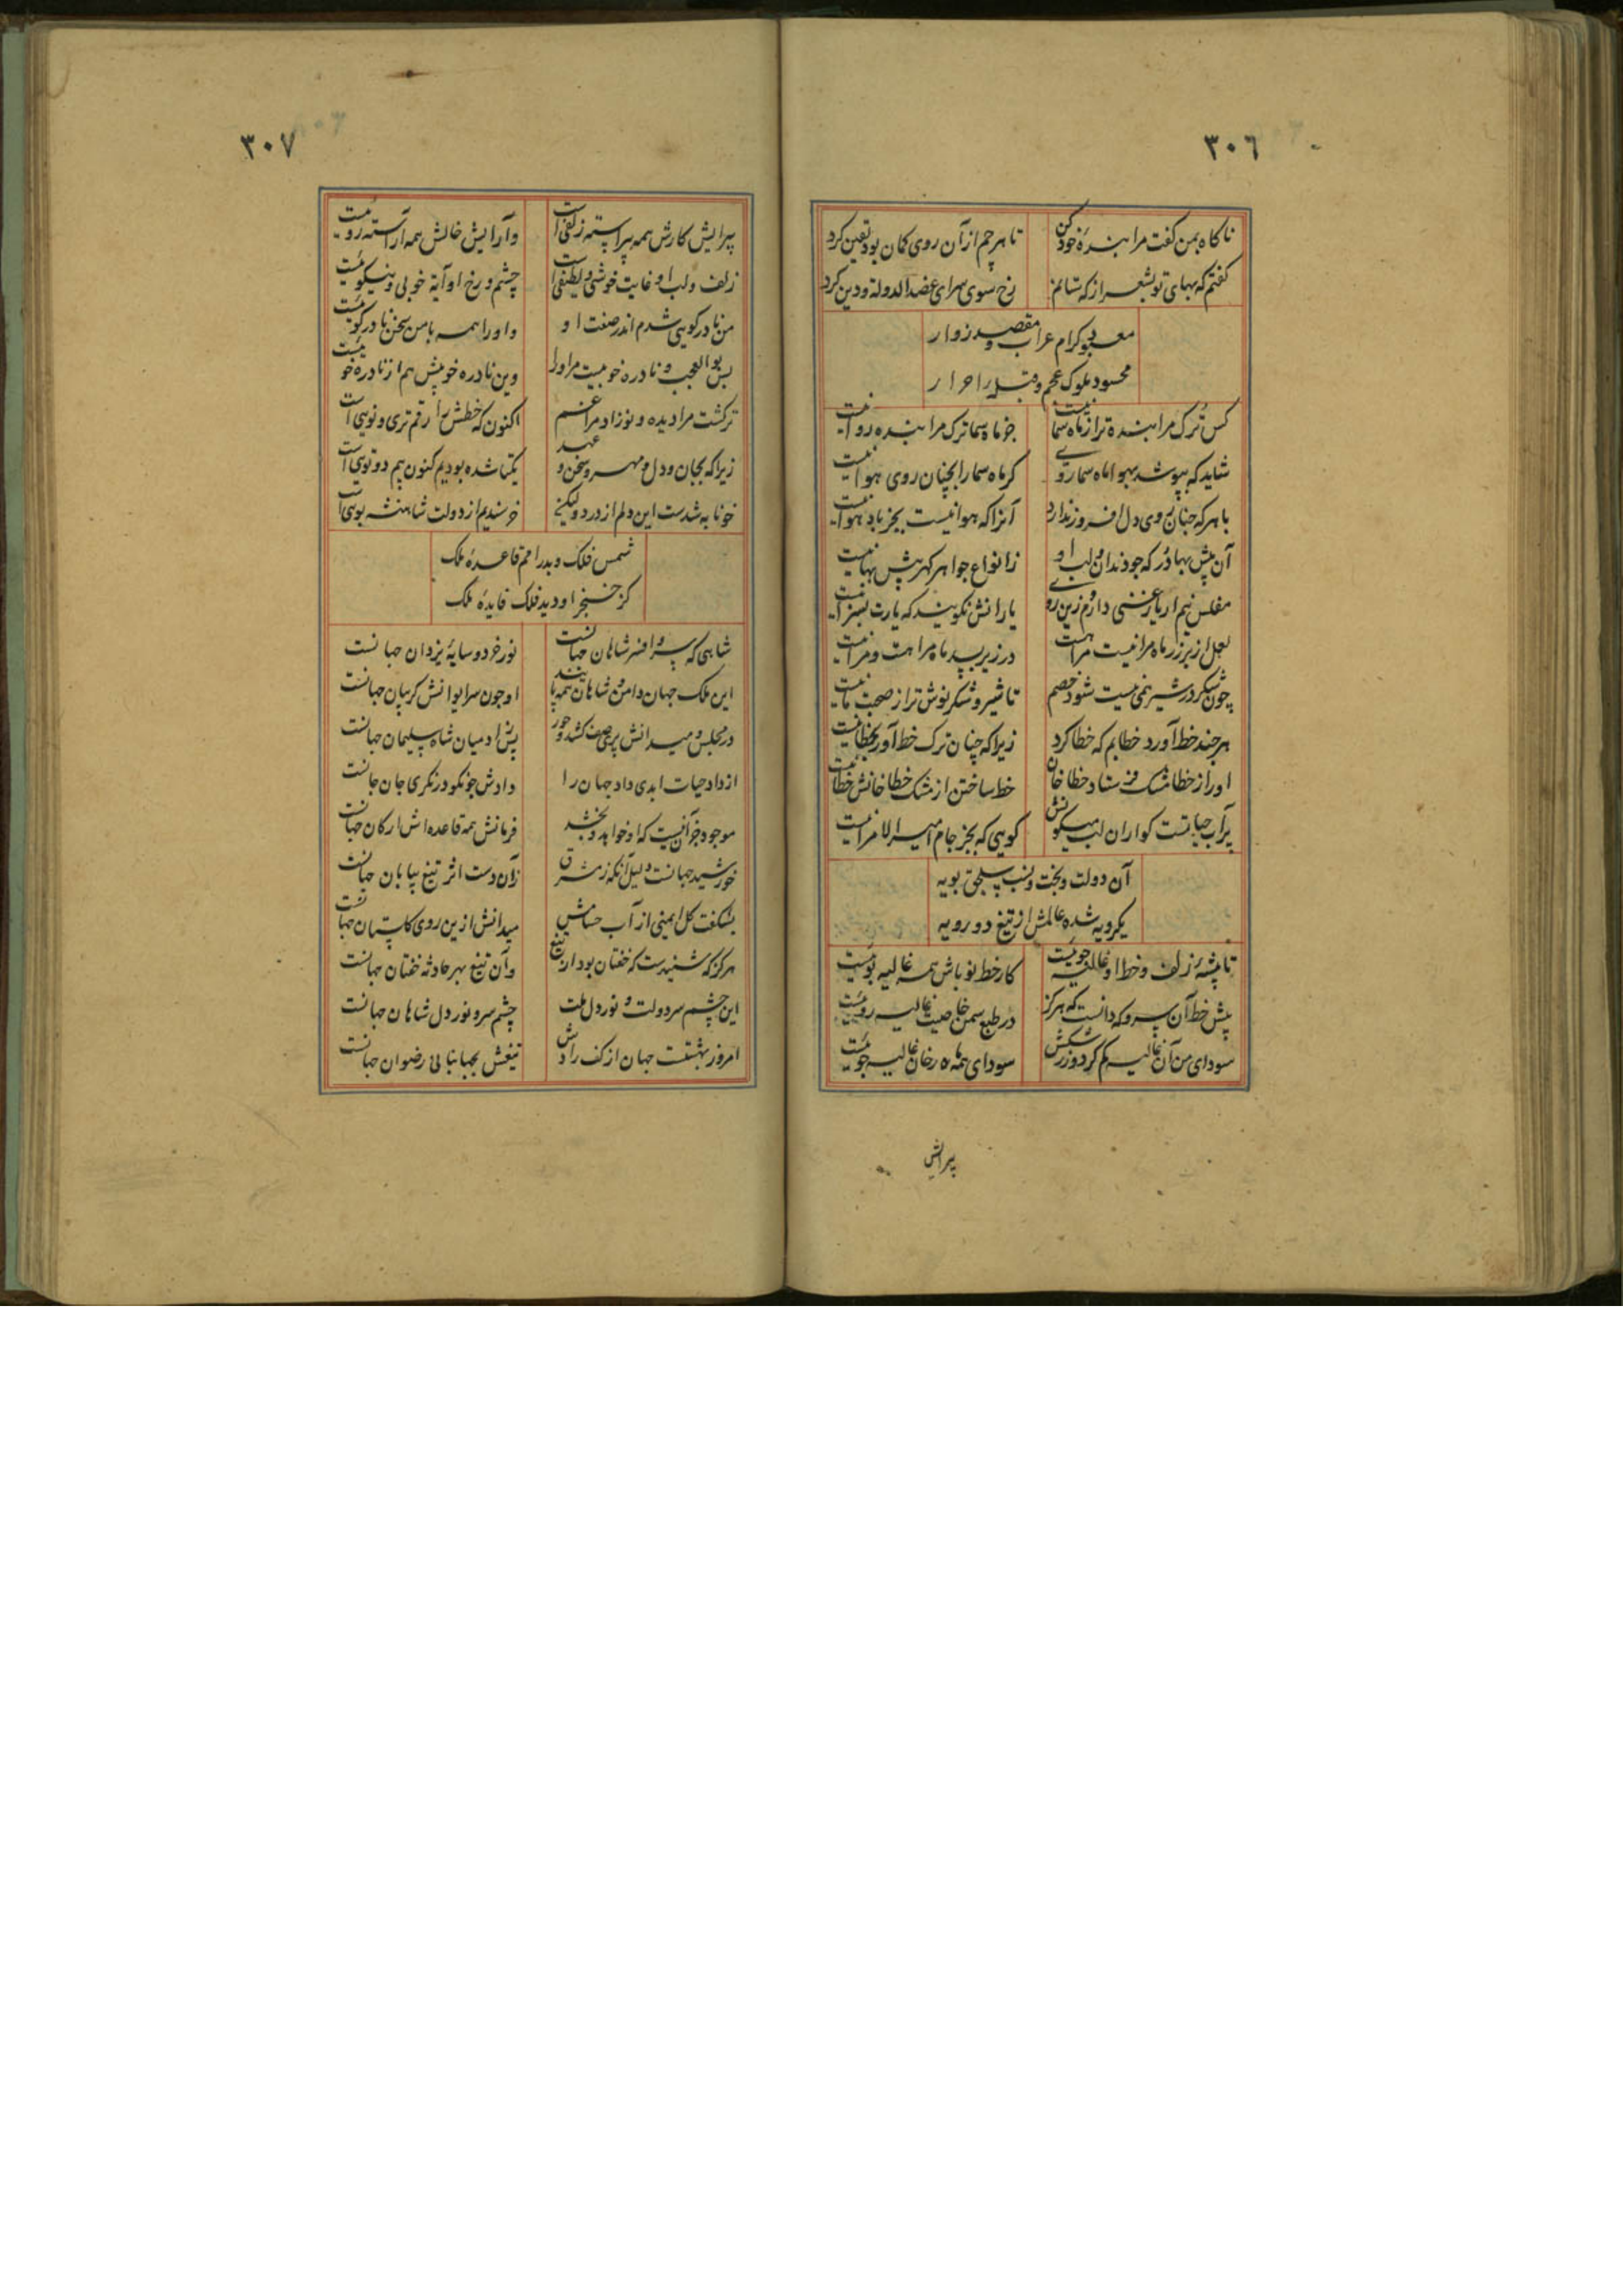 ٣٠٦
ناگاه بمن گفت مرا بندهٔ خود کن
تا هر چم از آن روی گمان بود یقین کرد
گفتم که بهای تو بشعر از که ستانم
رخ سوی سرای عضدالدوله و دین کرد
معبود کرام عرب و مقصد زوار
محسود ملوک عجم و قبله احرار
کس ترک مرا بنده تر از ماه سما نیست
جز ماه سما ترک مرا بنده روا نیست
شاید که بپوشد بهوا ماه سما روی
کر ماه سما را بچنان روی هوا نیست
با هر که چنان روی دل افروز ندارد
آنرا که هوا نیست بجز باد هوا نیست
آن بیش بها در که چو دندان و لب او
ز انواع جواهر گهر بیش بها نیست
مفلس نیم ار یار غنی دارم ازین روی
یارانش نگویند که یارت بسزا نیست
لعل از بر زر ماه مرا نیست مرا هست
در زیر سپید ماه مرا هست و مرا نیست
چون شکر در شیر نمی نیست شود خصم
تا شیر و شکر نوش تر از صحبت ما نیست
هر چند خط آورد خطایم که خطا کرد
زیرا که چنان ترک خط آور بخطا نیست
او را ز خطا مشک فرستاد خطا خان
خط ساختن از مشک خطا خانش خطا نیست
پر آب حیاتست کواران لب میگونش
گویی که بجز جام امیرالامرا نیست
آن دولت و بخت و نسب سلجق بویه
یکرویه شده عالمش از تیغ دو رویه
تا پیشهٔ زلف و خط او غالیه جوئیست
کار خط نو باش همه غالیه بوئیست
پیش خط آن سرو که دانست که هرگز
در طبع سمن خاصیت غالیه روئیست
سودای من آن غالیه کم کرد و زرشکش
سودای همه ماه رخان غالیه جوئیست
پیرایش
٣٠٧
پیرایش کارش همه پیراسته زلفی است
و آرایش خالش همه آراسته روئیست
زلف و لب او غایت خوشی و لطیفی است
چشم و رخ او آیة خوبی و نیکوئیست
من نادره گویی شدم اندر صفت او
و او را همه با من سخن نادره گوئیست
بس بوالعجب و نادره خوئیست مر او را
وین نادره خویش هم از نادره خوئیست
ترکشت مرا دیده و نو زاد مرا غم
اکنون که خطش را رقم تری و نویی است
زیرا که بجان و دل و مهر و سخن و عهد
یکتا شده بودیم کنون بیم دوتویی است
خونابه شدست این دلم از درد ولیکن
خرسندیم از دولت شاهنشه بویی است
شمس فلک و بدر امم قاعدهٔ ملک
کز خنجر او دید فلک فایدهٔ ملک
شاهی که سر و افسر شاهان جهانست
نور خرد و سایهٔ یزدان جهانست
این ملک جهان دامن و شاهان همه پایند
او چون سر ایوانش گریبان جهانست
در مجلس و میدانش پری صف کشد و حور
پس زاد میان شاه سلیمان جهانست
از داد حیات ابدی داد جهان را
دادش چو نکو درنگری جان جهانست
موجود جز آن نیست که او خواهد و بخشد
فرمانش همه قاعده اش ارکان جهانست
خورشید جهانست دلیل آنکه ز مشرق
زان دست اثر تیغ بپایان جهانست
بشکفت گل ایمنی از آب حسامش
میدانش ازین روی گلستان جهانست
هرگز که شنیدست که خفتان بود از تیغ
و آن تیغ بهر حادثه خفتان جهانست
این چشم سر دولت و نور دل ملت
چشم سر و نور دل شاهان جهانست
امروز بهشتست جهان از کف رادش
تیغش بجهانبانی رضوان جهانست